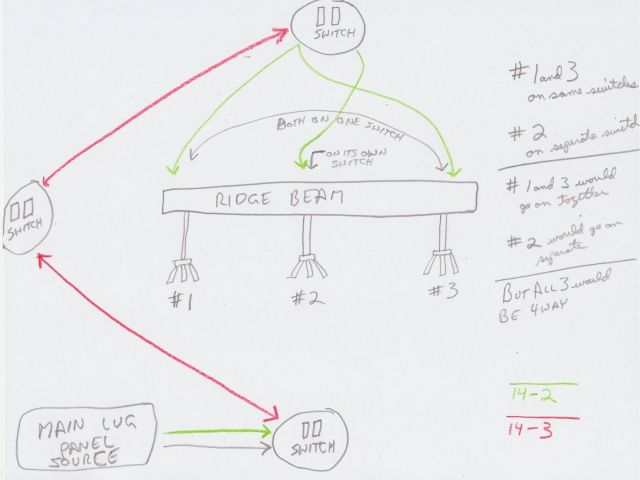 SWITCH
# 1 and 3
on same switches
# 2
on seperate switch
BOTH ON ONE SWITCH
ON ITS OWN
SWITCH
RIDGE BEAM
# 1 and 3 would
go on together
# 2 would go on
seperate
SWITCH
#1
#2
#3
BUT ALL 3 would
BE 4WAY
14-2
14-3
MAIN LUG
PANEL
SOURCE
SWITCH